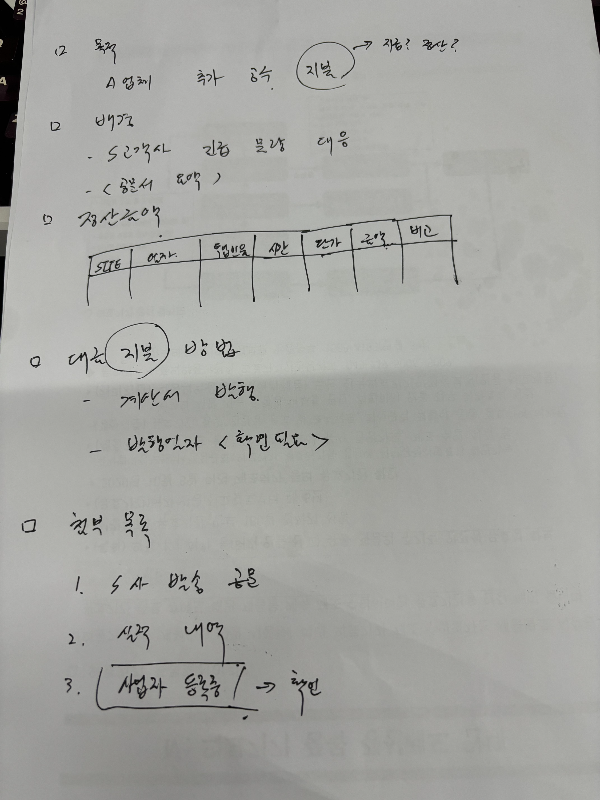 □ 목적
A업체 추가 공수 지불 → 지급? 정산?
□ 배경
- S고객사 긴급 물량 대응
- <공문서 요약>
□ 정산금액
SITE 일자 작업인원 시간 단가 금액 비고
□ 대금 지불 방법
- 계산서 발행
- 발행일자 <확인필요>
□ 첨부 목록
1. S사 발송 공문
2. 실적 내역
3. 사업자 등록증 → 확인